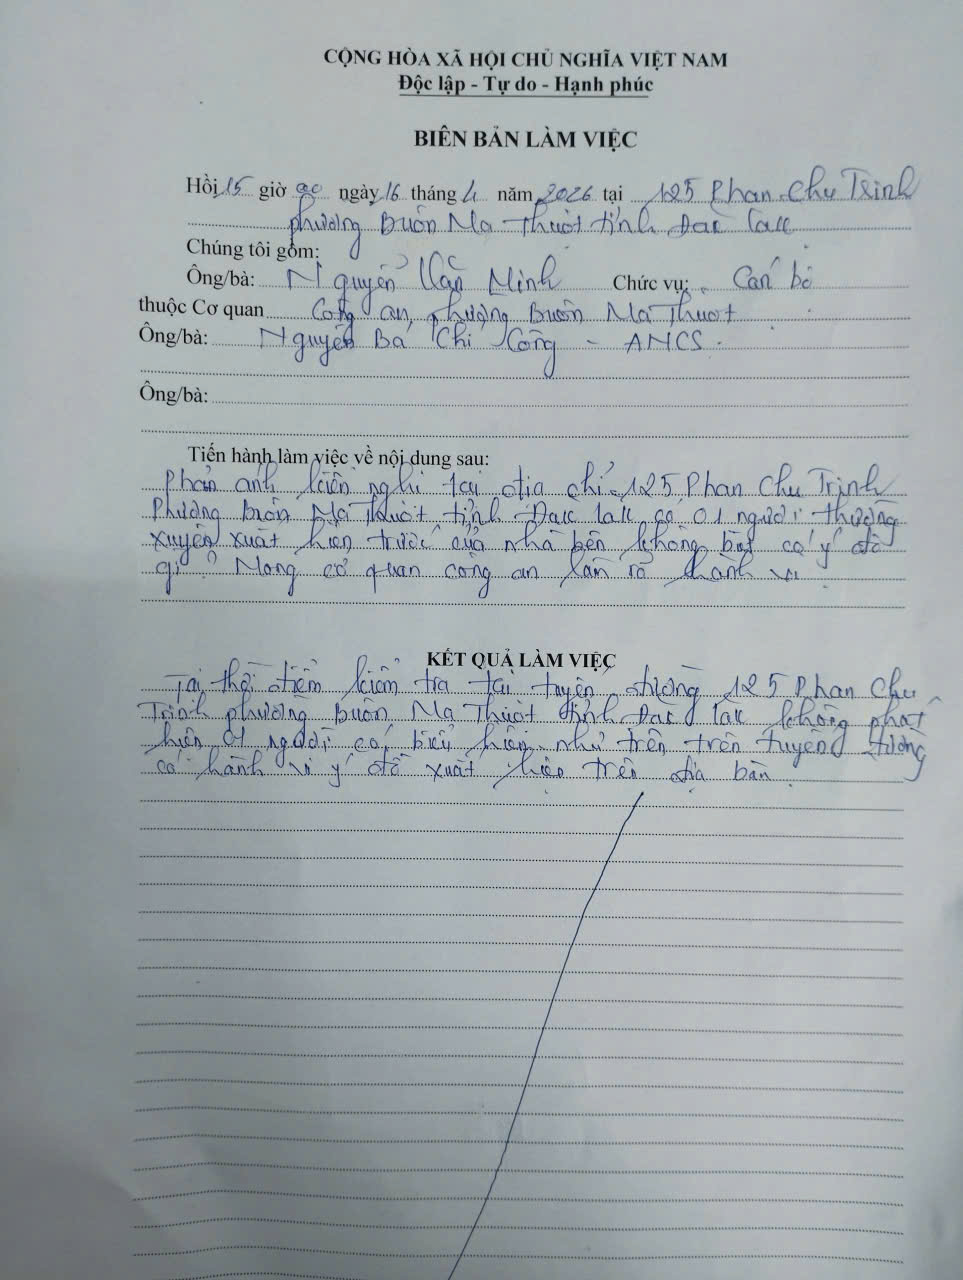 CỘNG HÒA XÃ HỘI CHỦ NGHĨA VIỆT NAM
Độc lập - Tự do - Hạnh phúc
BIÊN BẢN LÀM VIỆC
Hồi 15 giờ 00 ngày 16 tháng 4 năm 2026 tại 125 Phan Chu Trinh
phường Buôn Ma Thuột tỉnh Đắc Lắc
Chúng tôi gồm:
Ông/bà: Nguyễn Văn Minh Chức vụ: Cán bộ
thuộc Cơ quan Công an phường Buôn Ma Thuột
Ông/bà: Nguyễn Bá Chí Công - ANCS.
Ông/bà:
Tiến hành làm việc về nội dung sau:
Phản ánh kiến nghị tại địa chỉ 125 Phan Chu Trinh
Phường Buôn Ma Thuột tỉnh Đắc lắc có 01 người thường
xuyên xuất hiện trước cửa nhà bên không biết có ý đồ
gì? Mong cơ quan công an làm rõ hành vi
KẾT QUẢ LÀM VIỆC
Tại thời điểm kiểm tra tại tuyến đường 125 Phan Chu
Trinh phường Buôn Ma Thuột tỉnh Đắc lắc không phát
hiện 01 người có biểu hiện như trên trên tuyến đường
có hành vi ý đồ xuất hiện trên địa bàn